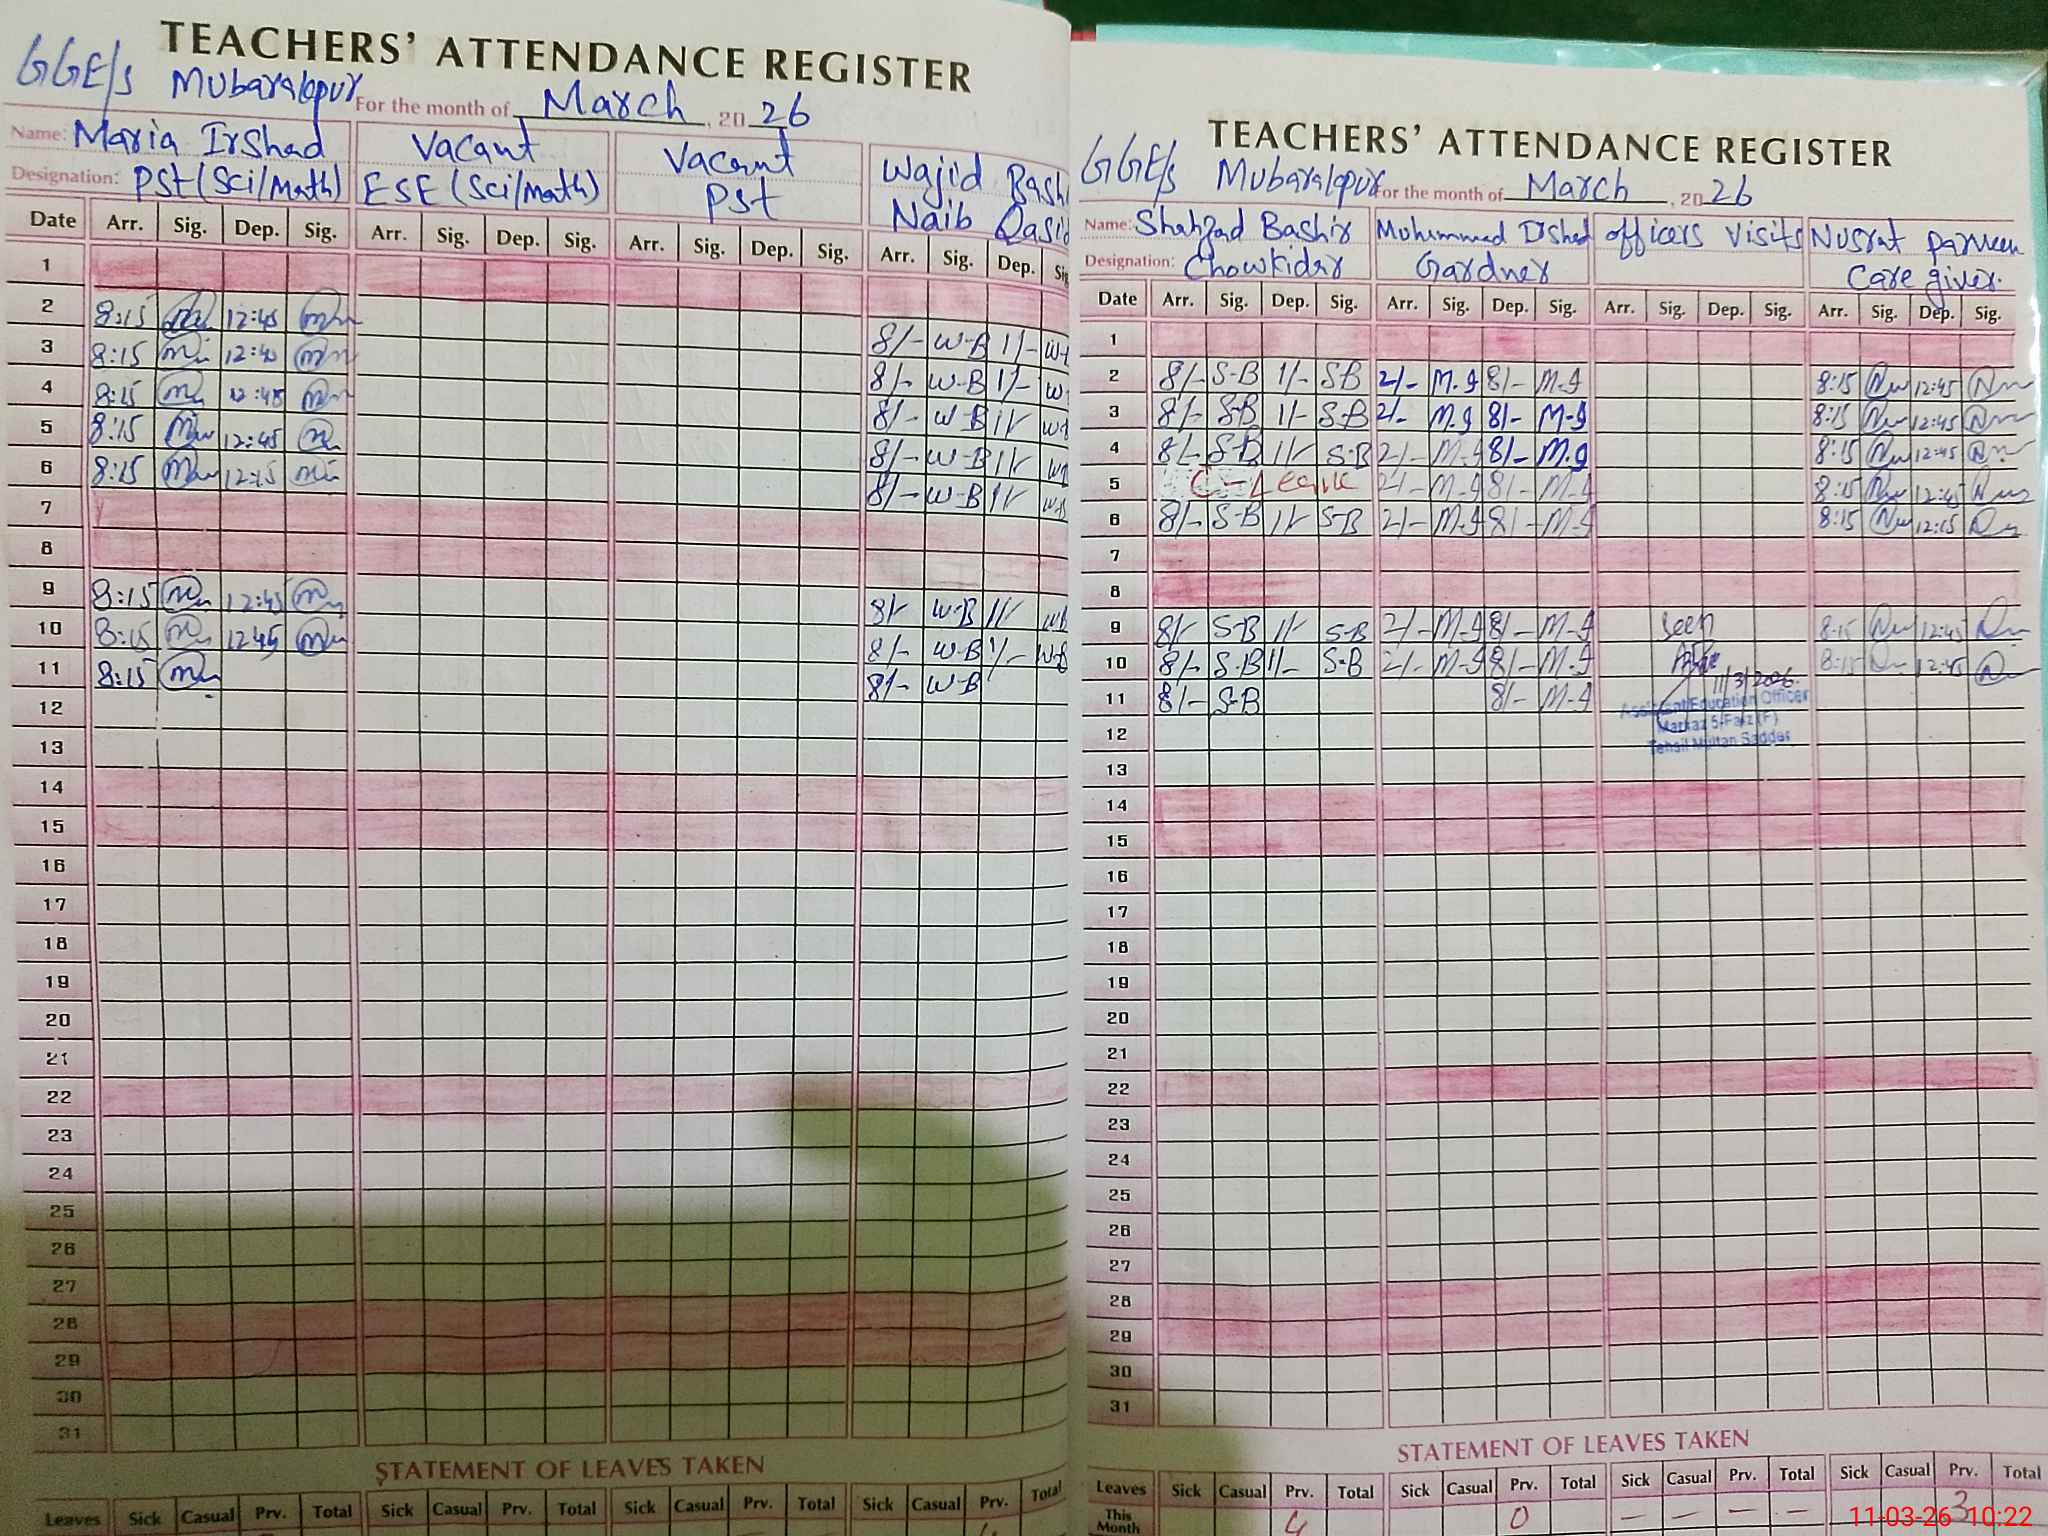 TEACHERS' ATTENDANCE REGISTER
GGE/s Mubarakpur For the month of March, 2026
Name: Maria Irshad Vacant Vacant Wajid Bashi
Designation: PST (Sci/Math) ESE (Sci/math) PST Naib Qasid
Date Arr. Sig. Dep. Sig. Arr. Sig. Dep. Sig. Arr. Sig. Dep. Sig. Arr. Sig. Dep. Sig
1
2 8:15 12:45
3 8:15 12:40 8/- W-B 1/-
4 8:15 12:45 8/- W-B 1/- W
5 8:15 12:45 8/- W-B 1/-
6 8:15 12:15 8/- W-B 1/-
8/- W-B 1/- W-B
7
8
9 8:15 12:45 8/- W-B 1/- WB
10 8:15 12:45 8/- W-B 1/- W-B
11 8:15 8/- W-B
12
13
14
15
16
17
18
19
20
21
22
23
24
25
26
27
28
29
30
31
STATEMENT OF LEAVES TAKEN
Leaves Sick Casual Prv. Total Sick Casual Prv. Total Sick Casual Prv. Total Sick Casual Prv. Total
TEACHERS' ATTENDANCE REGISTER
GGE/s Mubarakpur For the month of March, 2026
Name: Shahzad Bashir Muhammad Irshad officers visits Nusrat Parveen
Designation: Chowkidar Gardner Care giver.
Date Arr. Sig. Dep. Sig. Arr. Sig. Dep. Sig. Arr. Sig. Dep. Sig. Arr. Sig. Dep. Sig.
1
2 8/- S-B 1/- SB 2/- M.I 8/- M.I 8:15 12:45
3 8/- SB 1/- S-B 2/- M.I 8/- M-I 8:15 12:45
4 8/- S-B 1/- S-B 2/- M-I 8/- M.I 8:15 12:45
5 C-Leave 2/- M-I 8/- M-I 8:15 12:45
6 8/- S-B 1/- S-B 2/- M-I 8/- M-I 8:15 12:15
7
8
9 8/- S-B 1/- S-B 2/- M-I 8/- M-I Seen 8:15 12:45
10 8/- S-B 1/- S-B 2/- M-I 8/- M-I 8:15 12:45
11/3/2026.
11 8/- S-B 8/- M-I Assistant Education Officer
Markaz 5-Faiz (F)
Tehsil Multan Saddar
12
13
14
15
16
17
18
19
20
21
22
23
24
25
26
27
28
29
30
31
STATEMENT OF LEAVES TAKEN
Leaves Sick Casual Prv. Total Sick Casual Prv. Total Sick Casual Prv. Total Sick Casual Prv. Total
This Month 4 0 - - - - 3
11-03-26 10:22